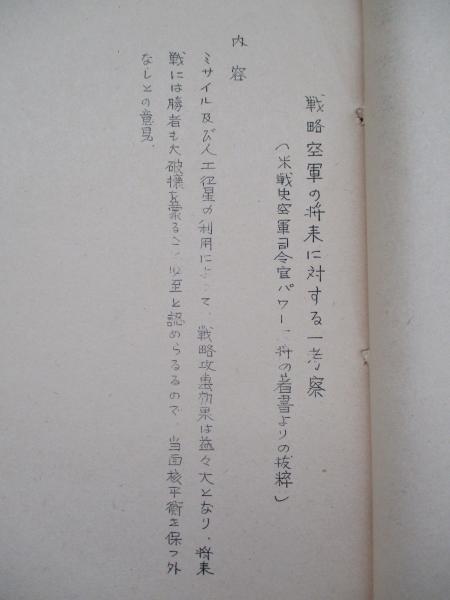 戦略空軍の将来に対する一考察
(米戦史空軍司令官パワー 将の著書よりの抜粋)
内容
ミサイル及び人工衛星の利用によって、戦略攻撃効果は益々大となり、将来
戦には勝者も大破壊を蒙ること必至と認めらるるので、当面核平衡を保つ外
なしとの意見。